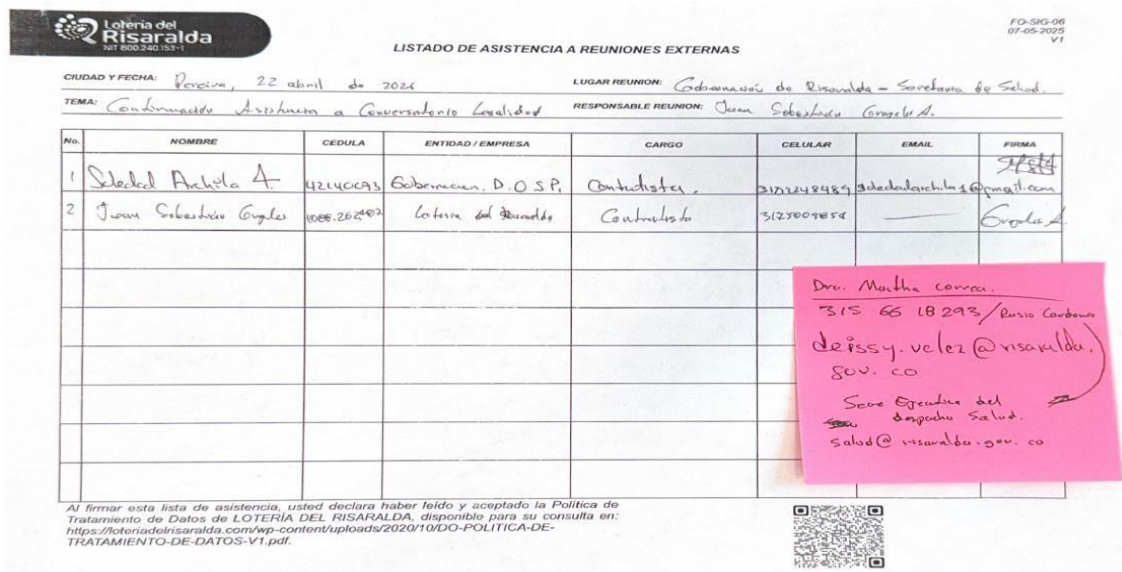 Lotería del
Risaralda
NIT 800.240.153-1
FO-SIG-06
07-05-2025
V1
LISTADO DE ASISTENCIA A REUNIONES EXTERNAS
CIUDAD Y FECHA: Pereira, 22 abril de 2026
LUGAR REUNION: Gobernación de Risaralda - Secretaria de Salud.
TEMA: Continuación Asistencia a Conversatorio Legalidad
RESPONSABLE REUNION: Juan Sebastián A.
No. NOMBRE CEDULA ENTIDAD / EMPRESA CARGO CELULAR EMAIL FIRMA
1 Soledad Archila A. 42140093 Gobernacion. D.O S.P. Contratista. soledadarchila1@gmail.com
2 Juan Sebastián Contratista
Dra. Martha Correa.
315 66 18 293 / Rosio
deissy.velez@risaralda.
gov.co
Ejecutiva del
despacho Salud.
salud@risaralda.gov.co
Al firmar esta lista de asistencia, usted declara haber leído y aceptado la Política de
Tratamiento de Datos de LOTERÍA DEL RISARALDA, disponible para su consulta en:
https://loteriadelrisaralda.com/wp-content/uploads/2020/10/DO-POLITICA-DE-
TRATAMIENTO-DE-DATOS-V1.pdf.